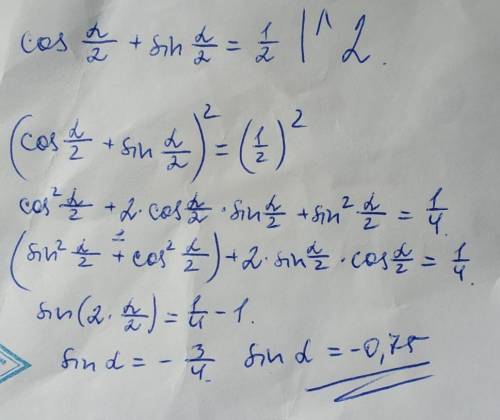 cos α/2 + sin α/2 = 1/2 | ^ 2.
(cos α/2 + sin α/2)² = (1/2)²
cos² α/2 + 2 · cos α/2 · sin α/2 + sin² α/2 = 1/4.
1
(sin² α/2 + cos² α/2) + 2 · sin α/2 · cos α/2 = 1/4.
sin(2 · α/2) = 1/4 - 1.
sin α = - 3/4. sin α = -0,75